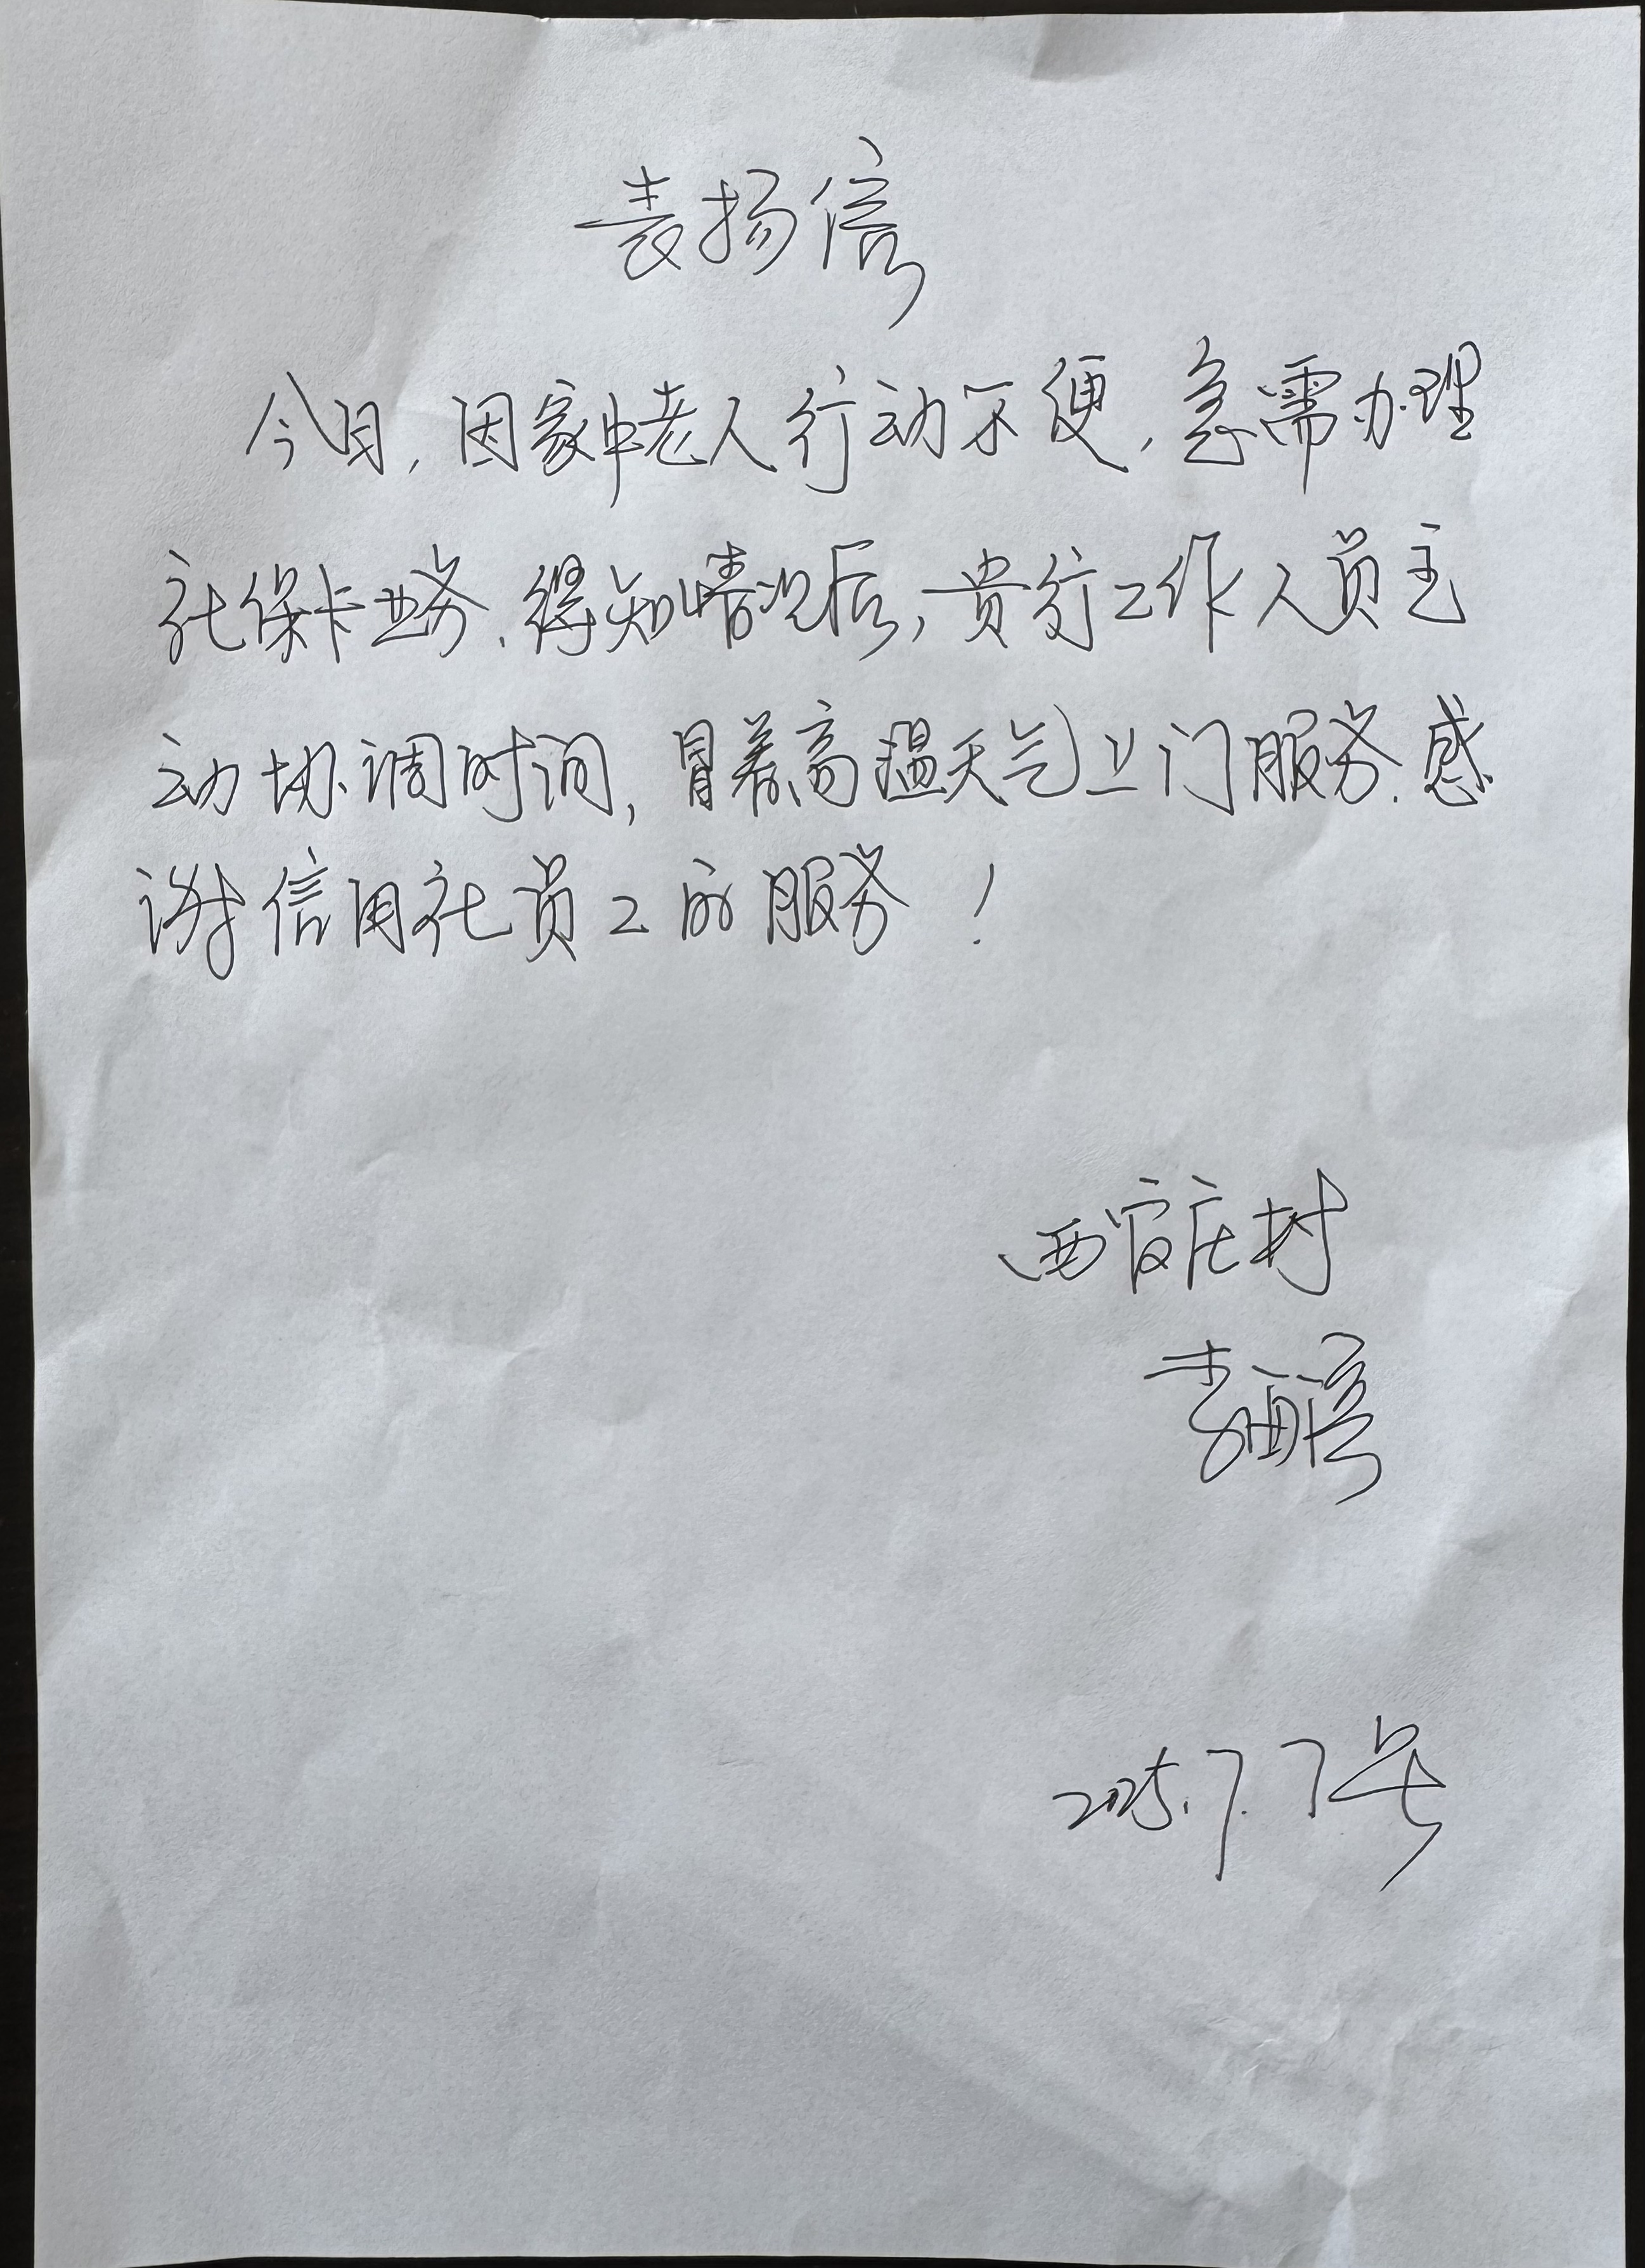 表扬信
今日,因家中老人行动不便,急需办理
社保卡业务.得知情况后,贵行工作人员主
动协调时间,冒着高温天气上门服务.感
谢信用社员工的服务!
西官庄村
李
2025.7.7号